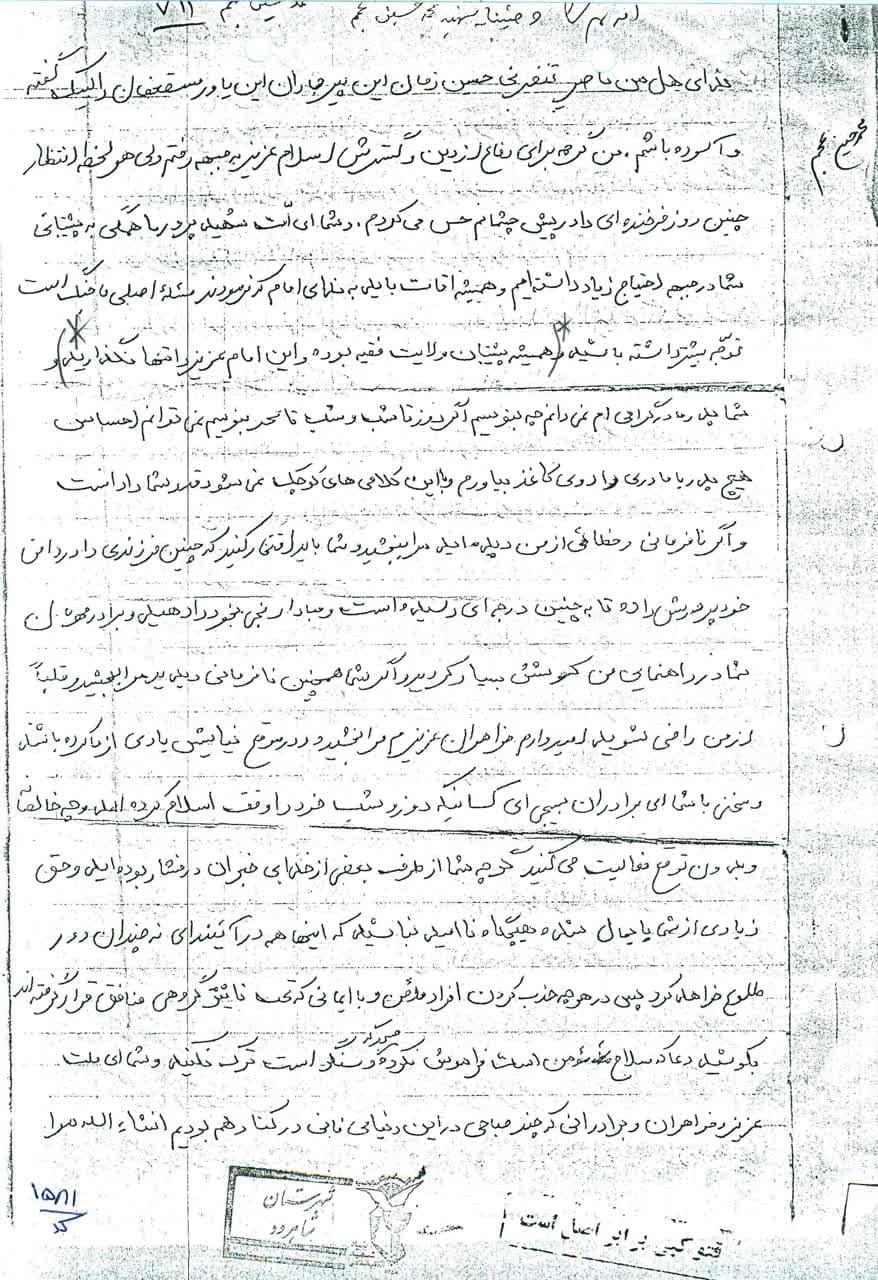 ادامه وصیتنامه شهید محمد حسین عجم
۷۱۱
محمد حسین عجم
ندای هل من ناصر تنصرنی حسین زمان این پیر جماران این یاور مستضعفان را لبیک گفته
و آسوده باشم. من گرچه برای دفاع از دین و گسترش اسلام عزیز به جبهه رفتم ولی هر لحظه انتظار
چنین روز فرخنده ای را در پیش چشمانم حس می کردم. و شما ای امت شهید پرور ما همگی به پشتیبانی
شما در جبهه احتیاج زیاد داشته ایم و همیشه اوقات باید به ندای امام که فرمودند مسئله اصلی ما جنگ است
توجه بیشتر داشته باشید (و همیشه پشتیبان ولایت فقیه بوده و این امام عزیز را تنها نگذارید) و
شما پدر و مادر گرامی ام نمی دانم چه بنویسم اگر روز تا شب و شب تا سحر بنویسم نمی توانم احساس
هیچ پدر یا مادری را روی کاغذ بیاورم و با این کلامی های کوچک نمی شود قدر شما را دانست
و اگر نافرمانی و خطائی از من دیده اید مرا ببخشید و شما باید افتخار کنید که چنین فرزندی را در دامن
خود پرورش داده تا به چنین درجه ای رسیده است و مبادا رنجی بخود راه دهید و برادر مهربانم
شما در راهنمایی من کوشش بسیار کردید و اگر شما همچنین نافرمانی دیدید مرا ببخشید و قلباً
از من راضی شوید امیدوارم خواهران عزیزم مرا ببخشید و در موقع نیایش یادی از ما کرده باشند
و سخنی با شما ای برادران بسیجی ای کسانیکه روز و شب خود را وقف اسلام کرده اید و چه خالصانه
و بدون توقع فعالیت می کنید گرچه شما از طرف بعضی از خدا بی خبران در فشار بوده اید و حق
زیادی از شما پایمال شده و هیچگاه ناامید نباشید که اینها همه در آینده ای نه چندان دور
طلوع خواهد کرد پس در هر چه جذب کردن افراد مؤمن و با ایمانی که تحت تأثیر گروهی منافق قرار گرفته اند
بکوشید دعا که سلاح مومن است فراموش نکرده و سنگر است ترک نکنید و شما ای ملت
عزیز و خواهران و برادرانی که چند صباحی در این دنیای فانی در کنار هم بودیم انشاء الله مرا
۱۵۸۱
کد
شهرستان
شاهرود
فتوکپی برابر اصل است